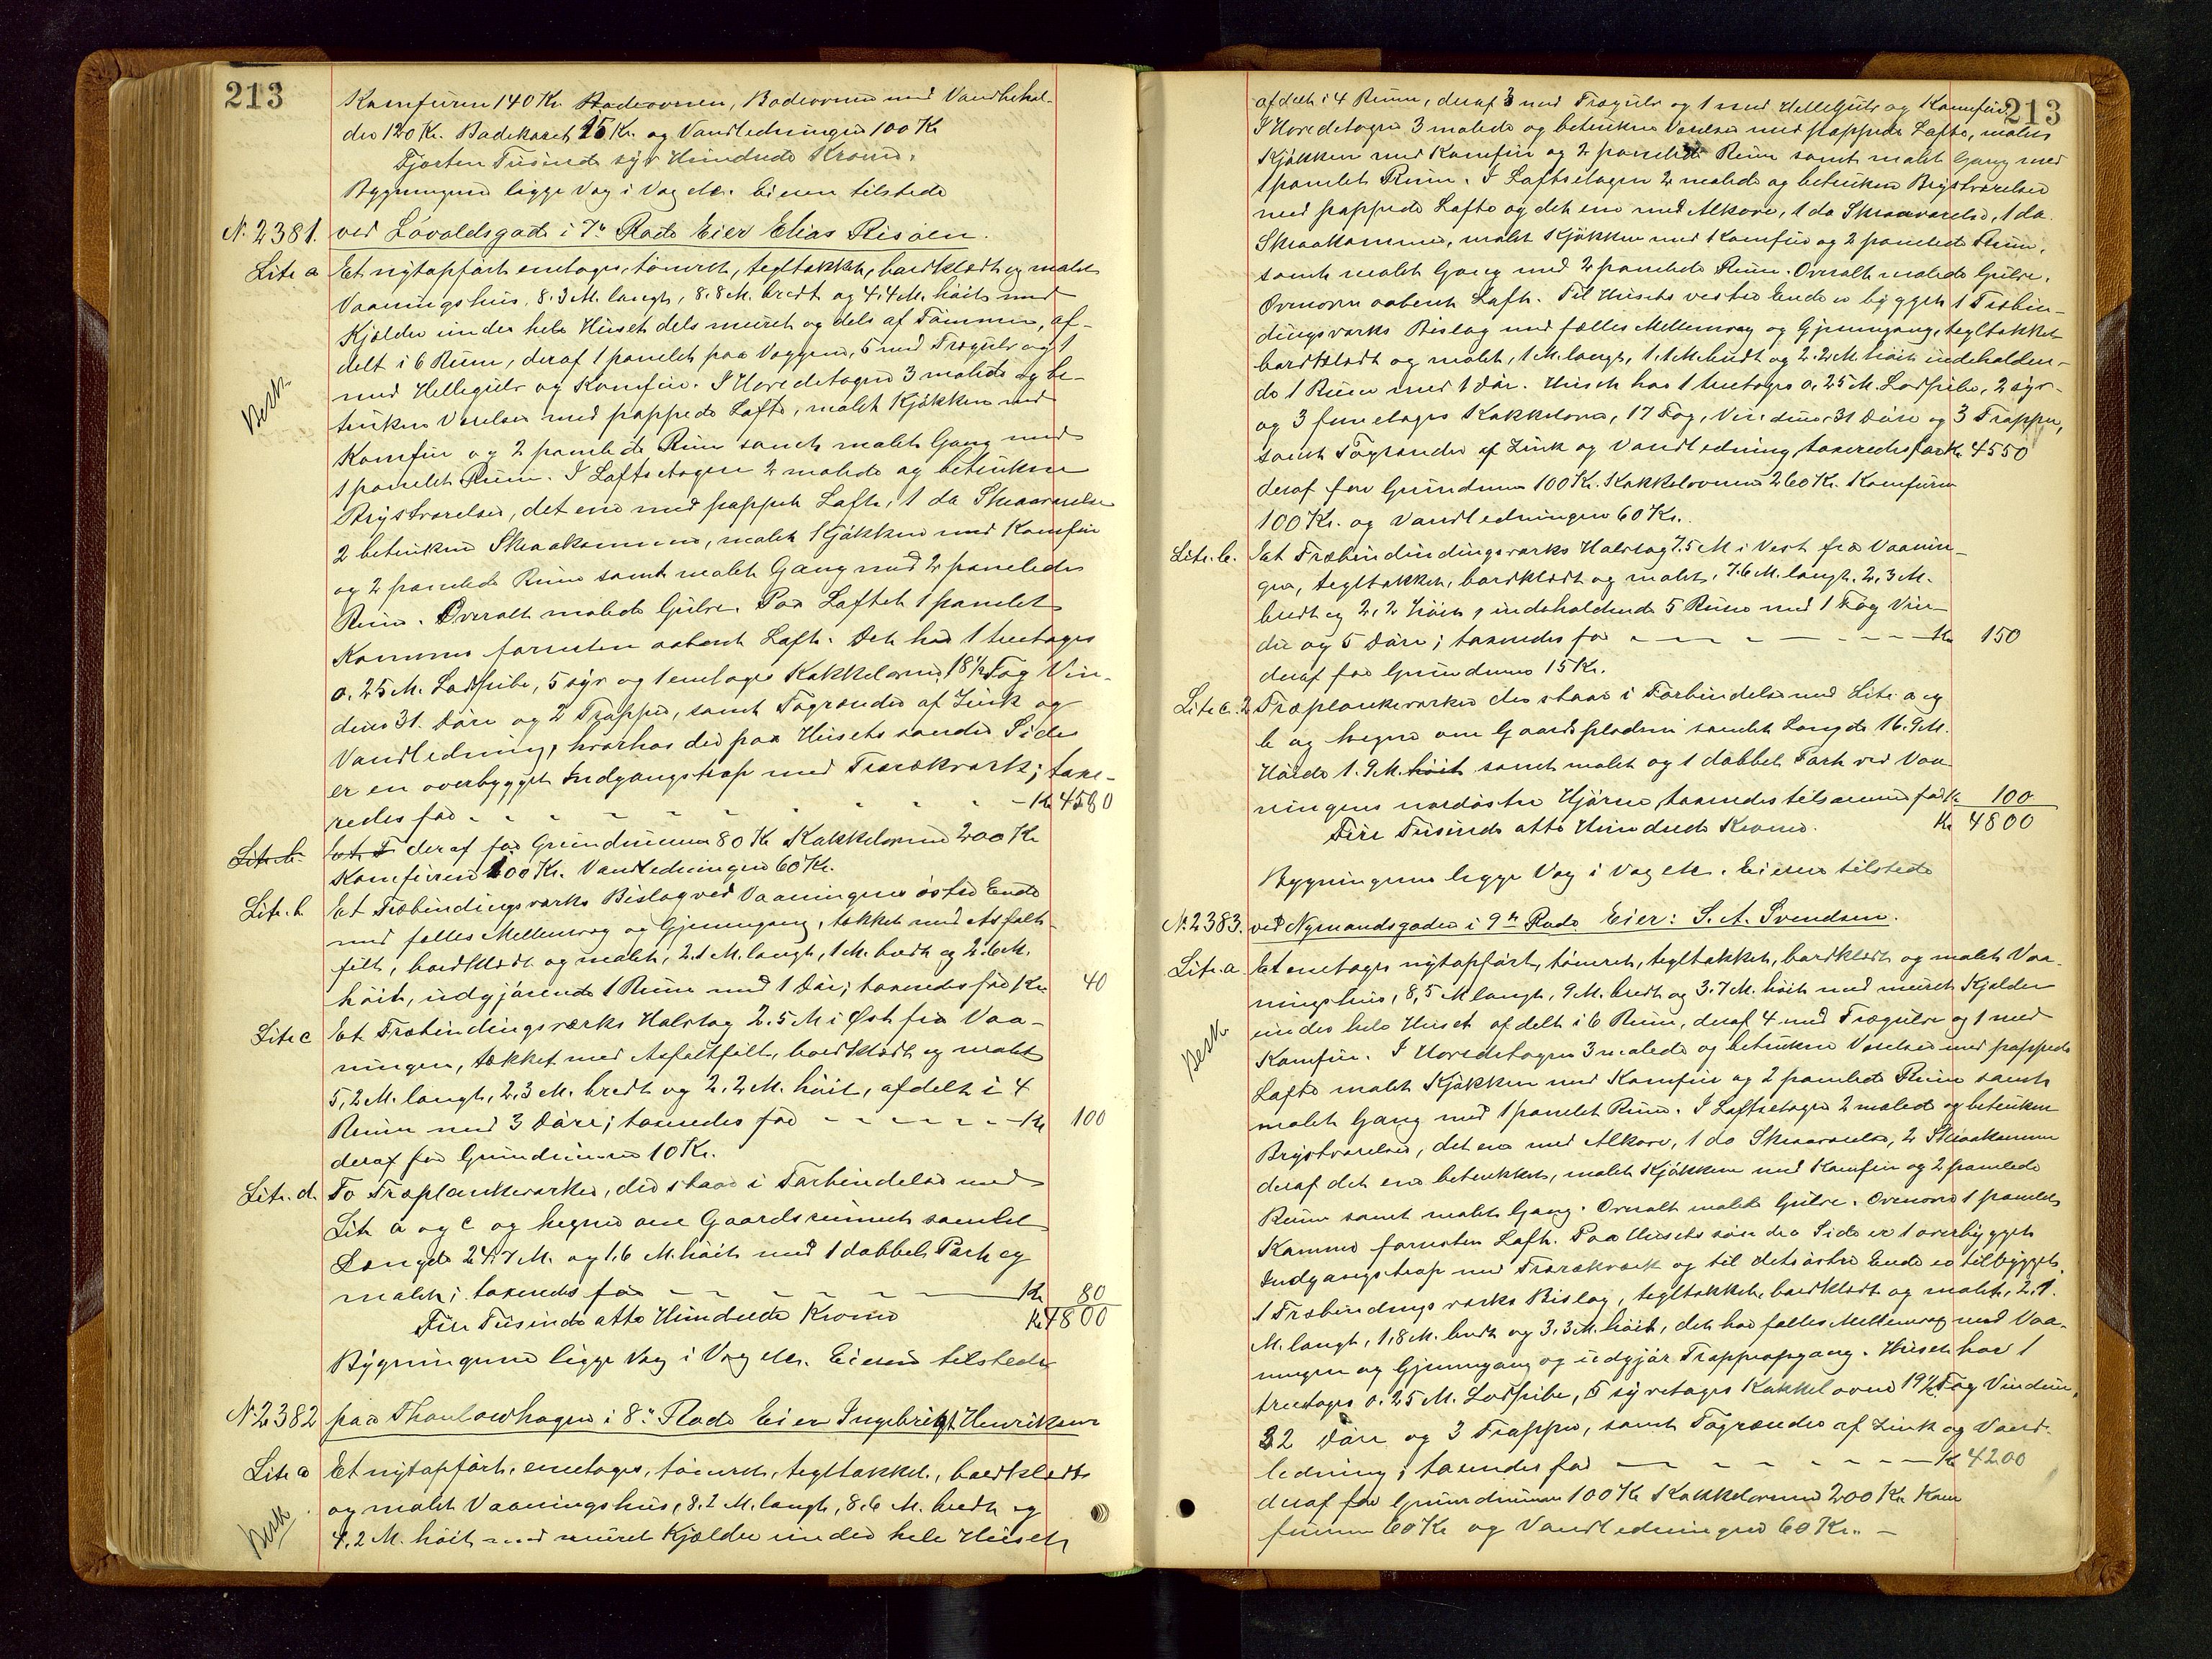 213
Komfuren 140 Kr. Badeovnen, Badeovnen med Vandbehol-
der 120 Kr. Badekaret 25 Kr. og Vandledningen 100 Kr
Fjorten Tusinde syv Hundrede Kroner.
Bygningerne ligge Væg i Væg etc. Eieren tilstede
N. 2381. ved Løvoldsgade i 7de Rode Eier Elias Risøen.
Litr a Et nytopført eenetages, tømret, tegltækket, bordklædt og malet
Vaaningshus, 8.3 M. langt, 8.8 M. bredt og 4.4 M. høit med
Kjælder under hele Huset dels muret og dels af Tømmer, af-
delt i 6 Rum, deraf 1 panelet paa Væggene, 5 med Trægulv og 1
Besk.
med Hellegulv og Komfur. I Hovedetagen 3 malede og be-
trukne Værelser med pappede Lofte, malet Kjøkken med
Komfur og 2 panelede Rum samt malet Gang med
1 panelet Rum. I Loftsetagen 2 malede og betrukne
Brystværelser, det ene med pappet Loft, 1 do Skraaværelse
2 betrukne Skraakammere, malet Kjøkken med Komfur
og 2 panelede Rum samt malet Gang med 2 panelede
Rum. Overalt malede Gulve. Paa Loftet 1 panelet
Kammer forresten aabent Loft. Det har 1 treetages
0.25 M. Lodpibe, 5 syv og 1 eenetages Kakkelovne, 18 1/2 Fag Vin-
duer 31. Døre og 2 Trapper, samt Tagrender af Zink og
Vandledning, hvorhos der paa Husets søndre Side
er en overbygget Indgangstrap med Trærækværk; taxe-
redes for - - - - - - - Kr 4580
Litr. b. Et T deraf for Grundmuren 80 Kr Kakkelovnene 200 Kr
Komfurene 100 Kr. Vandledningen 60 Kr.
Litr. b. Et Træbindingsværks Bislag ved Vaaningens østre Ende
med fælles Mellemvæg og Gjennemgang, tækket med Asfalt-
filt, bordklædt og malet, 2.1 M. langt, 1 M. bredt og 2.6 M.
høit, udgjørende 1 Rum med 1 Dør; taxeredes for Kr. 40
Litr c Et Træbindingsværks Halvtag 2.5 M i Øst fra Vaa-
ningen, tækket med Asfaltfilt, bordklædt og malet
5,2 M. langt, 2,3 M. bredt og 2,2 M. høit, afdelt i 4
Rum med 3 Døre; taxeredes for - - - - - - Kr 100
deraf for Grundmuren 10 Kr.
Litr. d. To Træplankeværker, der staar i Forbindelse med
Litr a og c og hegner om Gaardsrummet samlet
Længde 24.7 M. og 1.6 M. høit med 1 dobbelt Port og
malet; taxeredes for - - - - - - Kr 80
Fire Tusinde otte Hundrede Kroner Kr 4800
Bygningerne ligge Væg i Væg etc. Eieren tilstede
N. 2382 paa Thaulowhagen i 8de Rode Eier Ingebrigt Henriksen
Litr a Et nytopført, eenetages, tømret, tegltækket, bordklædt
og malet Vaaningshus, 8.2 M. langt, 8.6 M. bredt og
Besk
4.2 M. høit med muret Kjælder under hele Huset
213
afdelt i 4 Rum, deraf 3 med Trægulv og 1 med Hellegulv og Komfur.
I Hovedetagen 3 malede og betrukne Værelser med pappede Lofte, malet
Kjøkken med Komfur og 2 panelede Rum samt malet Gang med
1 panelet Rum. I Loftsetagen 2 malede og betrukne Brystværelser
med pappede Lofte og det ene med Alkove, 1 do Skraaværelse, 1 do.
Skraakammer, malet Kjøkken med Komfur og 2 panelede Rum,
samt malet Gang med 2 panelede Rum. Overalt malede Gulve.
Ovenover aabent Loft. Til Husets vestre Ende er bygget 1 Træbin-
dingsværks Bislag med fælles Mellemvæg og Gjennemgang, tegltækket
bordklædt og malet, 1 M. langt, 1.1 M. bredt og 2.2 M. høit indeholden-
de 1 Rum med 1 Dør. Huset har 1 treetages 0,25 M. Lodpibe, 2 syv-
og 3 fem etages Kakkelovne, 17 Fag Vinduer, 31 Døre og 3 Trapper,
samt Tagrender af Zink og Vandledning taxeredes for Kr. 4550
deraf for Grundmuren 100 Kr. Kakkelovnene 260 Kr. Komfuren
100 Kr. og Vandledningen 60 Kr.
Litr. b. Et Træbindindingsværks Halvtag 7.5 M i Vest fra Vaanin-
gen, tegltækket, bordklædt og malet, 7.6 M. langt, 2,3 M.
bredt og 2,2 høit, indeholdende 5 Rum med 1 Fag Vin-
due og 5 Døre; taxeredes for - - - - - - Kr 150
deraf for Grundmuren 15 Kr.
Litr c. 2 Træplankeværker der staar i Forbindelse med Litr a og
b og hegner om Gaardspladsen samlet Længde 16.9 M.
Høide 1.9 M. høit samt malet og 1 dobbelt Port ved Vaa-
ningens nordøstre Hjørne, taxeredes tilsammen for Kr. 100
Fire Tusinde otte Hundrede Kroner. Kr 4800
Bygningerne ligge Væg i Væg etc. Eieren tilstede
N. 2383. ved Nymandsgaden i 9de Rode Eier: S. A. Svendsen.
Litr. a Et eenetages nytopført, tømret, tegltækket, bordklædt og malet Vaa-
ningshus, 8,5 M langt, 9 M. bredt og 3.7 M. høit med muret Kjælder
under hele Huset afdelt i 6 Rum, deraf 4 med Trægulve og 1 med
Besk.
Komfur. I Hovedetagen 3 malede og betrukne Værelser med pappede
Lofte malet Kjøkken med Komfur og 2 panelede Rum samt
malet Gang med 1 panelet Rum. I Loftsetagen 2 malede og betrukne
Brystværelser, det ene med Alkove, 1 do Skraaværelse, 2 Skraakammere
deraf det ene betrukket, malet Kjøkken med Komfur og 2 panelede
Rum samt malet Gang. Overalt malede Gulve. Ovenover 1 panelet
Kammer forresten Loft. Paa Husets søndre Side er 1 overbygget
Indgangstrap med Trærækværk og til dets østre Ende er tilbygget
1 Træbindingsværks Bislag, tegltækket, bordklædt og malet, 2,1.
M. langt, 1,8 M. bredt og 3,3 M. høit, det har fælles Mellemvæg med Vaa-
ningen og Gjennemgang og udgjør Trappeopgang. Huset har 1
treetages 0.25 M. Lodpibe, 5 syvetages Kakkelovne 19 1/2 Fag Vinduer,
32 Døre og 3 Trapper, samt Tagrender af Zink og Vand-
ledning; taxeredes for - - - - - - Kr 4200
deraf for Grundmuren 100 Kr Kakkelovnene 200 Kr. Kom
furene 60 Kr og Vandledningen 60 Kr. -